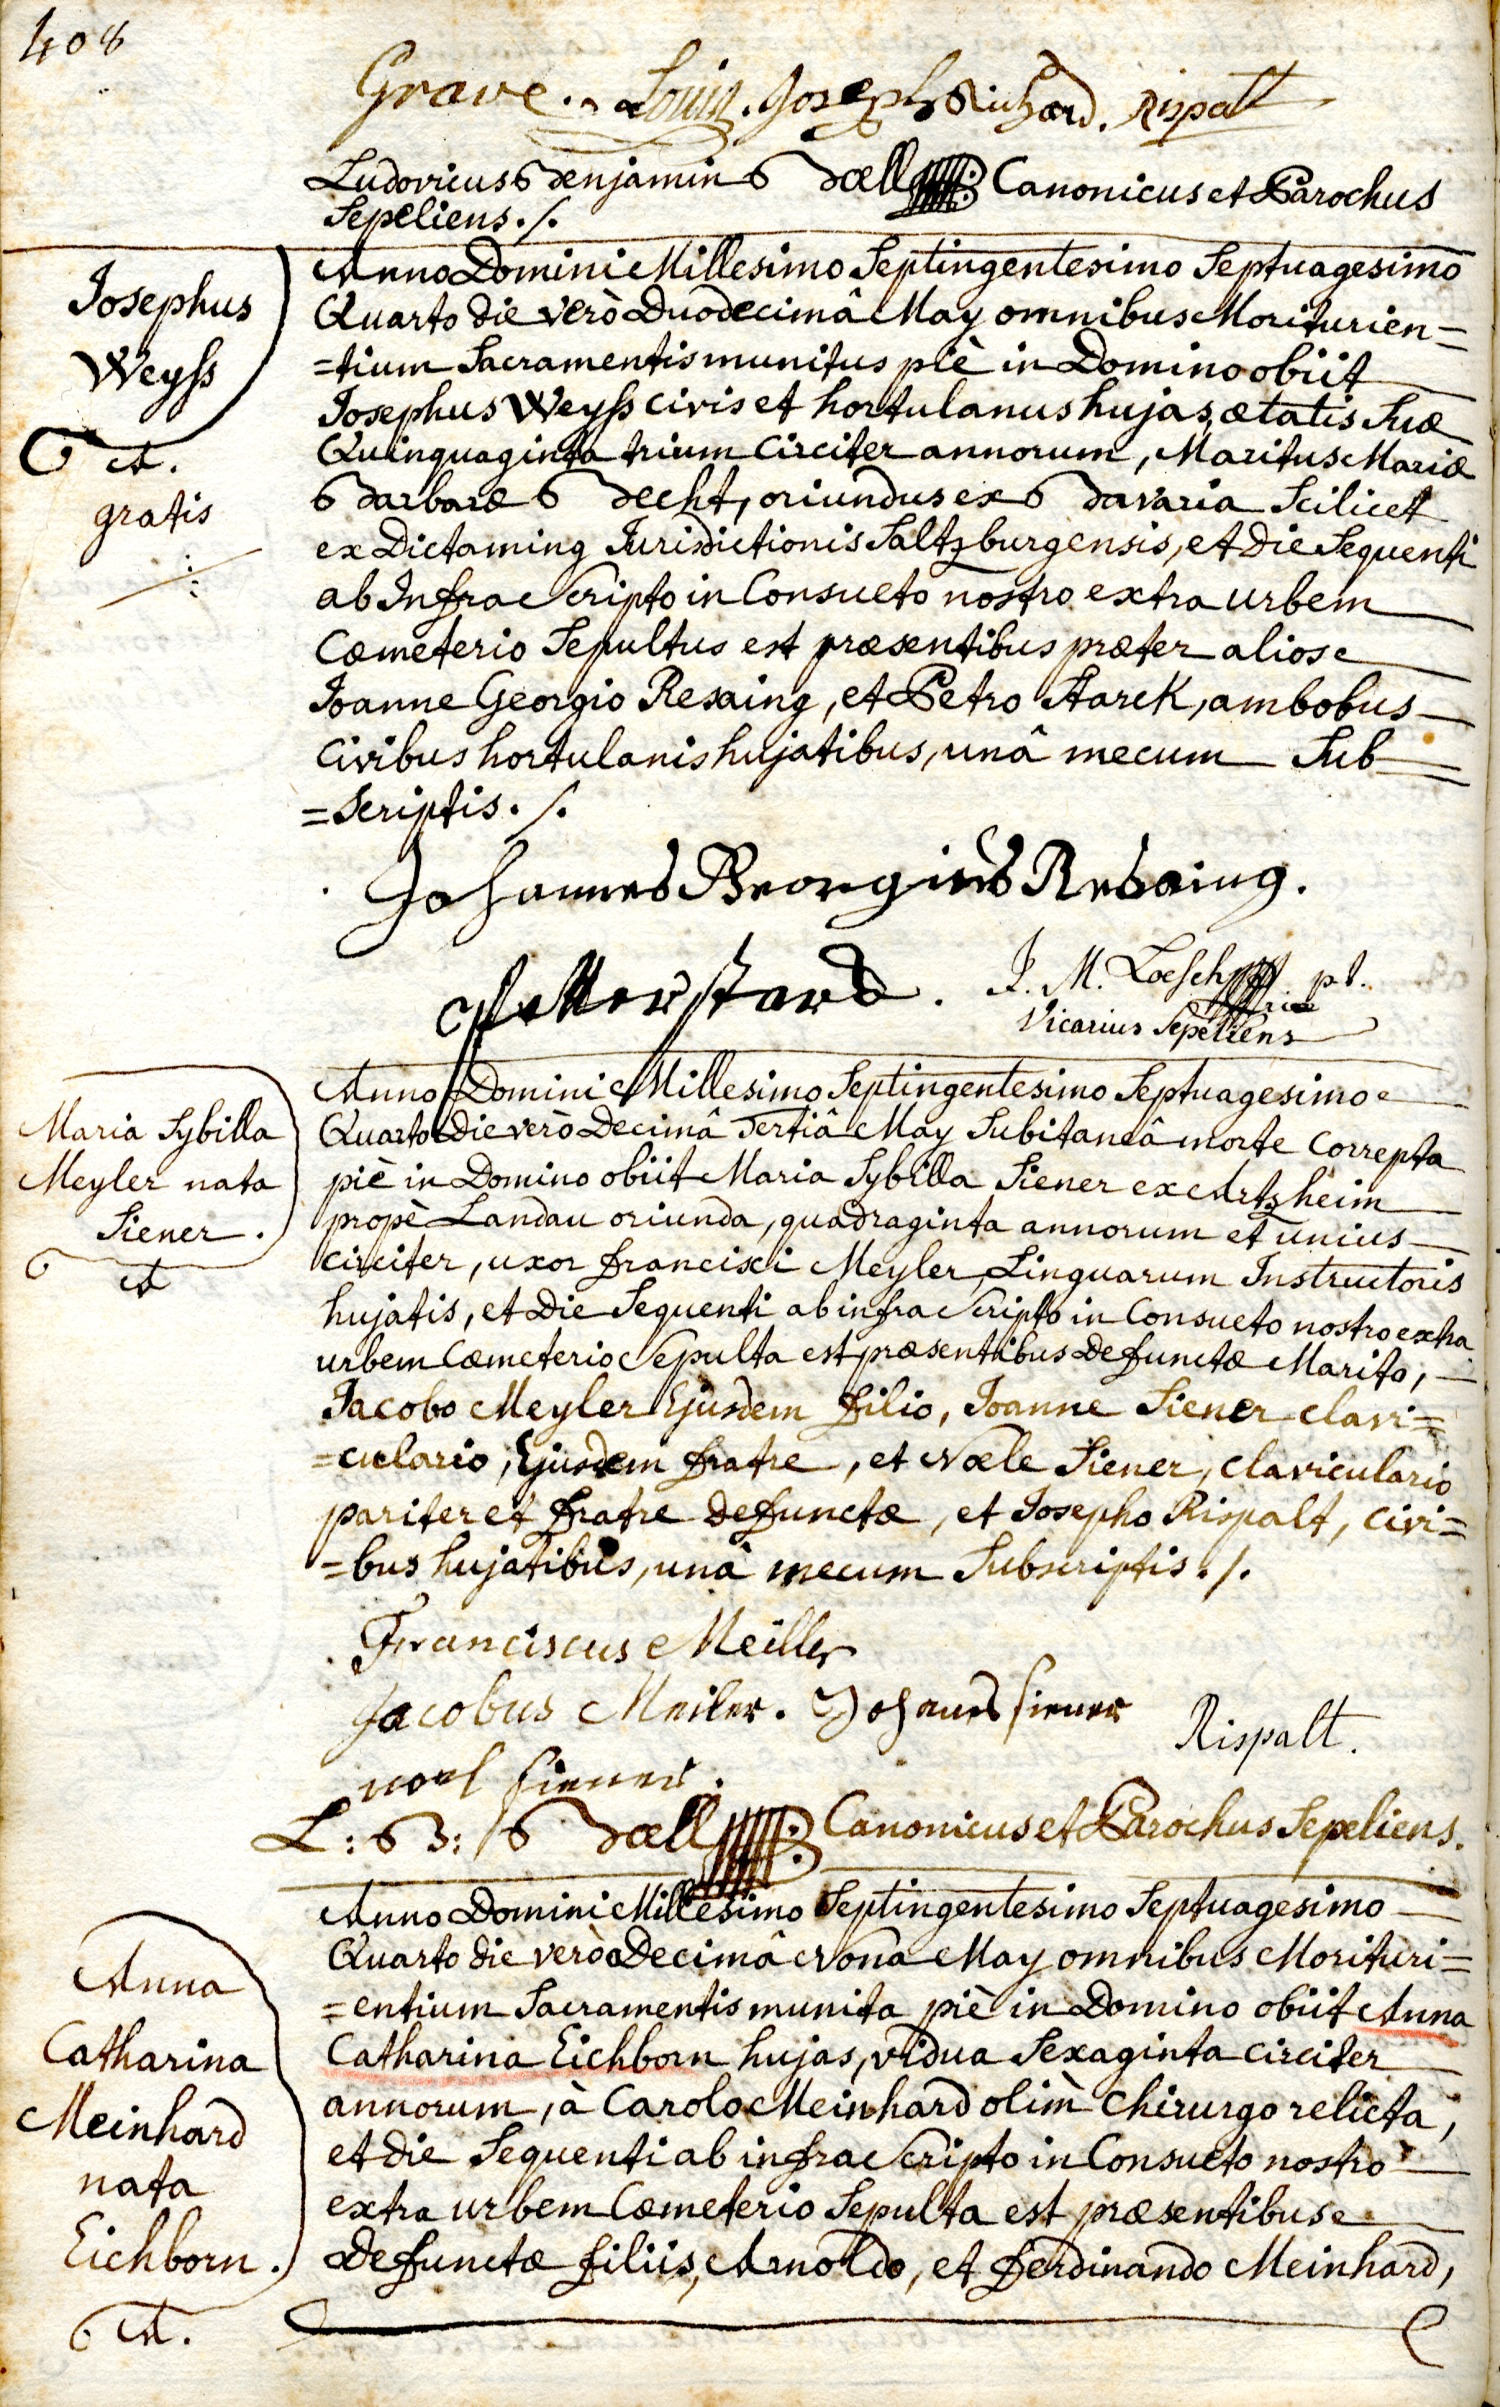 408
Grave. Louis. Joseph Richard. Rispalt
Ludovicus Benjamin Ball Canonicus et Parochus
Sepeliens ./.
Josephus
Weyss
A.
gratis
Anno Domini Millesimo Septingentesimo Septuagesimo
Quarto die verò Duodecimâ May omnibus Moriturien=
=tium Sacramentis munitus piè in Domino obiit
Josephus Weyss civis et hortulanus hujas, ætatis Suæ
Quinquaginta trium Circiter annorum, Maritus Mariæ
Barbaræ Becht, oriundus ex Bavaria Scilicet
ex Dictaming Jurisdictionis Saltzburgensis, et Die Sequenti
ab Infra Scripto in Consueto nostro extra urbem
Cæmeterio Sepultus est præsentibus præter alios
Joanne Georgio Resaing, et Petro Starck, ambobus
Civibus hortulanis hujatibus, unâ mecum Sub=
=Scriptis ./.
Johannes Georgius Resaing.
Petter starck. J. M. Loesch p.t.
Vicarius Sepeliens
Maria Sybilla
Meyler nata
Siener.
A
Anno Domini Millesimo Septingentesimo Septuagesimo
Quarto Die verò Decimâ Tertiâ May Subitaneâ morte Correpta
piè in Domino obiit Maria Sybilla Siener ex Artzheim
propè Landau oriunda, quadraginta annorum et unius
circiter, uxor Francisci Meyler Linguarum Instructoris
hujatis, et Die Sequenti ab infra Scripto in Consueto nostro extra
urbem Cæmeterio Sepulta est præsentibus Defunctæ Marito,
Jacobo Meyler Ejusdem filio, Joanne Siener clavi=
=culario, Ejusdem fratre, et Noele Siener, claviculario
pariter et fratre Defunctæ, et Josepho Rispalt, Civi=
=bus hujatibus, unâ mecum Subscriptis ./.
Franciscus Meiller
Jacobus Meiler. Johannes siener Rispalt.
noel siener.
L: B: Ball Canonicus et Parochus Sepeliens.
Anna
Catharina
Meinhard
nata
Eichborn.
A.
Anno Domini Millesimo Septingentesimo Septuagesimo
Quarto die verò Decimâ Nona May omnibus Morituri=
=entium Sacramentis munita piè in Domino obiit Anna
Catharina Eichborn hujas, vidua Sexaginta circiter
annorum, à Carolo Meinhard olim Chirurgo relicta,
et die Sequenti ab infra Scripto in Consueto nostro
extra urbem Cæmeterio Sepulta est præsentibus
Defunctæ filiis, Arnoldo, et Ferdinando Meinhard,